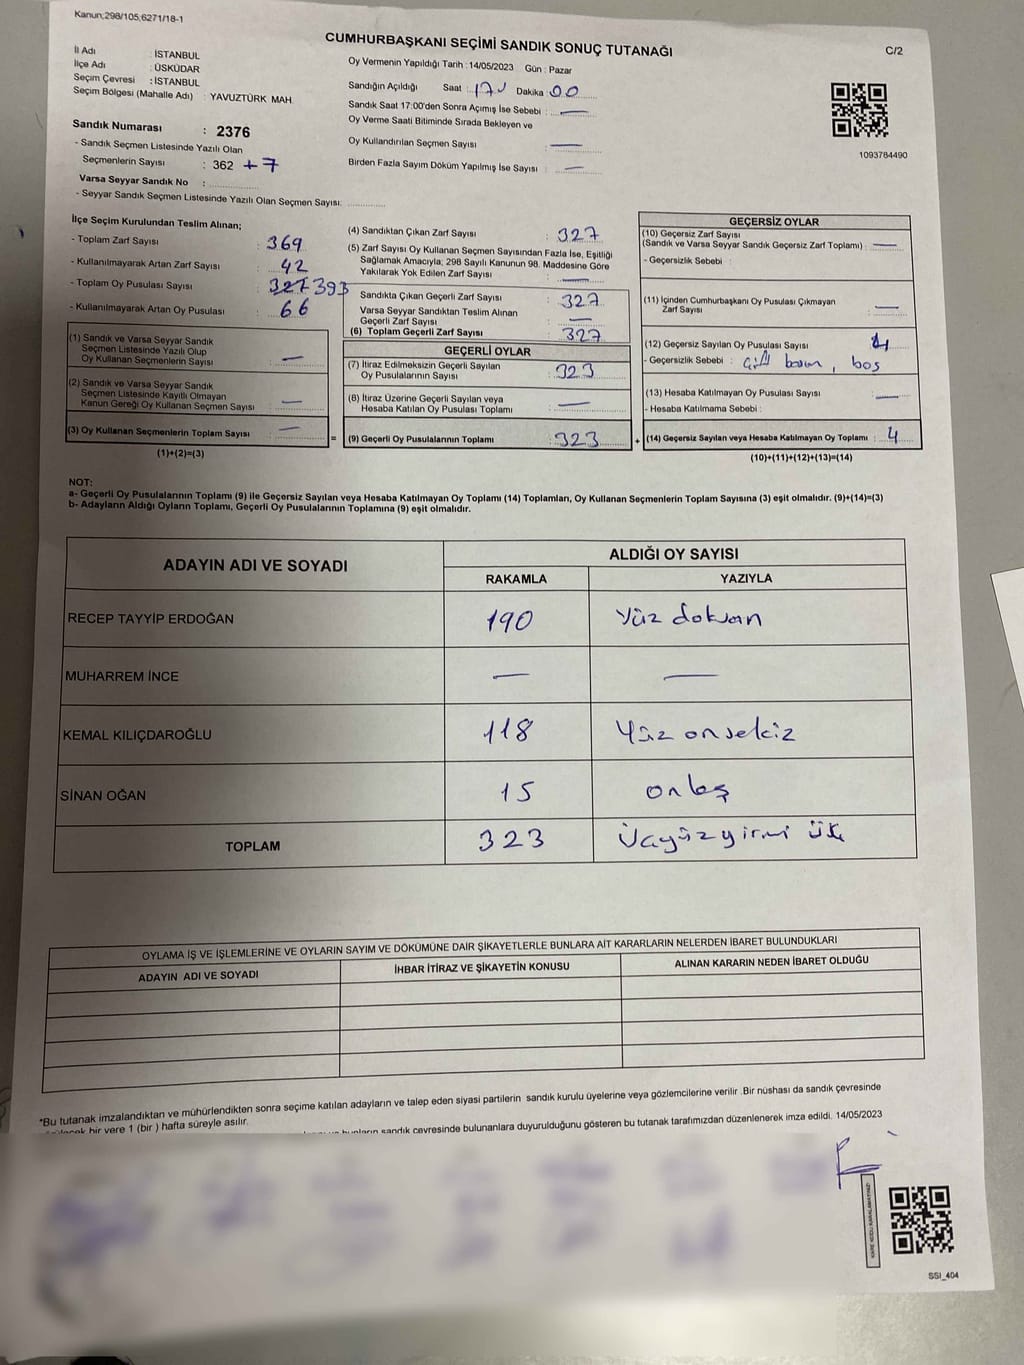 Kanun;298/105;6271/18-1
CUMHURBAŞKANI SEÇİMİ SANDIK SONUÇ TUTANAĞI
C/2
İl Adı : İSTANBUL
İlçe Adı : ÜSKÜDAR
Seçim Çevresi : İSTANBUL
Seçim Bölgesi (Mahalle Adı) : YAVUZTÜRK MAH.
Sandık Numarası : 2376
- Sandık Seçmen Listesinde Yazılı Olan
Seçmenlerin Sayısı : 362 +7
Varsa Seyyar Sandık No :
- Seyyar Sandık Seçmen Listesinde Yazılı Olan Seçmen Sayısı:
Oy Vermenin Yapıldığı Tarih : 14/05/2023 Gün : Pazar
Sandığın Açıldığı Saat : 17 Dakika 00
Sandık Saat 17:00'den Sonra Açımış İse Sebebi : —
Oy Verme Saati Bitiminde Sırada Bekleyen ve
Oy Kullandırılan Seçmen Sayısı —
Birden Fazla Sayım Döküm Yapılmış İse Sayısı : —
1093784490
İlçe Seçim Kurulundan Teslim Alınan;
- Toplam Zarf Sayısı : 369
- Kullanılmayarak Artan Zarf Sayısı : 42
- Toplam Oy Pusulası Sayısı : 327 393
- Kullanılmayarak Artan Oy Pusulası : 66
(1) Sandık ve Varsa Seyyar Sandık
Seçmen Listesinde Yazılı Olup
Oy Kullanan Seçmenlerin Sayısı : —
(2) Sandık ve Varsa Seyyar Sandık
Seçmen Listesinde Kayıtlı Olmayan
Kanun Gereği Oy Kullanan Seçmen Sayısı : —
(3) Oy Kullanan Seçmenlerin Toplam Sayısı : —
(1)+(2)=(3)
=
(4) Sandıktan Çıkan Zarf Sayısı : 327
(5) Zarf Sayısı Oy Kullanan Seçmen Sayısından Fazla İse, Eşitliği
Sağlamak Amacıyla; 298 Sayılı Kanunun 98. Maddesine Göre
Yakılarak Yok Edilen Zarf Sayısı : —
Sandıkta Çıkan Geçerli Zarf Sayısı : 327
Varsa Seyyar Sandıktan Teslim Alınan
Geçerli Zarf Sayısı : —
(6) Toplam Geçerli Zarf Sayısı : 327
GEÇERLİ OYLAR
(7) İtiraz Edilmeksizin Geçerli Sayılan
Oy Pusulalarının Sayısı : 323
(8) İtiraz Üzerine Geçerli Sayılan veya
Hesaba Katılan Oy Pusulası Toplamı : —
(9) Geçerli Oy Pusulalarının Toplamı : 323
+
GEÇERSİZ OYLAR
(10) Geçersiz Zarf Sayısı
(Sandık ve Varsa Seyyar Sandık Geçersiz Zarf Toplamı) : —
- Geçersizlik Sebebi :
(11) İçinden Cumhurbaşkanı Oy Pusulası Çıkmayan
Zarf Sayısı : —
(12) Geçersiz Sayılan Oy Pusulası Sayısı : 4
- Geçersizlik Sebebi : çift basım, boş
(13) Hesaba Katılmayan Oy Pusulası Sayısı : —
- Hesaba Katılmama Sebebi :
(14) Geçersiz Sayılan veya Hesaba Katılmayan Oy Toplamı : 4
(10)+(11)+(12)+(13)=(14)
NOT:
a- Geçerli Oy Pusulalarının Toplamı (9) ile Geçersiz Sayılan veya Hesaba Katılmayan Oy Toplamı (14) Toplamları, Oy Kullanan Seçmenlerin Toplam Sayısına (3) eşit olmalıdır. (9)+(14)=(3)
b- Adayların Aldığı Oyların Toplamı, Geçerli Oy Pusulalarının Toplamına (9) eşit olmalıdır.
ADAYIN ADI VE SOYADI
ALDIĞI OY SAYISI
RAKAMLA YAZIYLA
RECEP TAYYİP ERDOĞAN 190 Yüz doksan
MUHARREM İNCE — —
KEMAL KILIÇDAROĞLU 118 Yüz onsekiz
SİNAN OĞAN 15 onbeş
TOPLAM 323 Üçyüzyirmi üç
OYLAMA İŞ VE İŞLEMLERİNE VE OYLARIN SAYIM VE DÖKÜMÜNE DAİR ŞİKAYETLERLE BUNLARA AİT KARARLARIN NELERDEN İBARET BULUNDUKLARI
ADAYIN ADI VE SOYADI İHBAR İTİRAZ VE ŞİKAYETİN KONUSU ALINAN KARARIN NEDEN İBARET OLDUĞU
*Bu tutanak imzalandıktan ve mühürlendikten sonra seçime katılan adayların ve talep eden siyasi partilerin sandık kurulu üyelerine veya gözlemcilerine verilir .Bir nüshası da sandık çevresinde
bir yere 1 (bir ) hafta süreyle asılır.
sandık çevresinde bulunanlara duyurulduğunu gösteren bu tutanak tarafımızdan düzenlenerek imza edildi. 14/05/2023
SSI_404